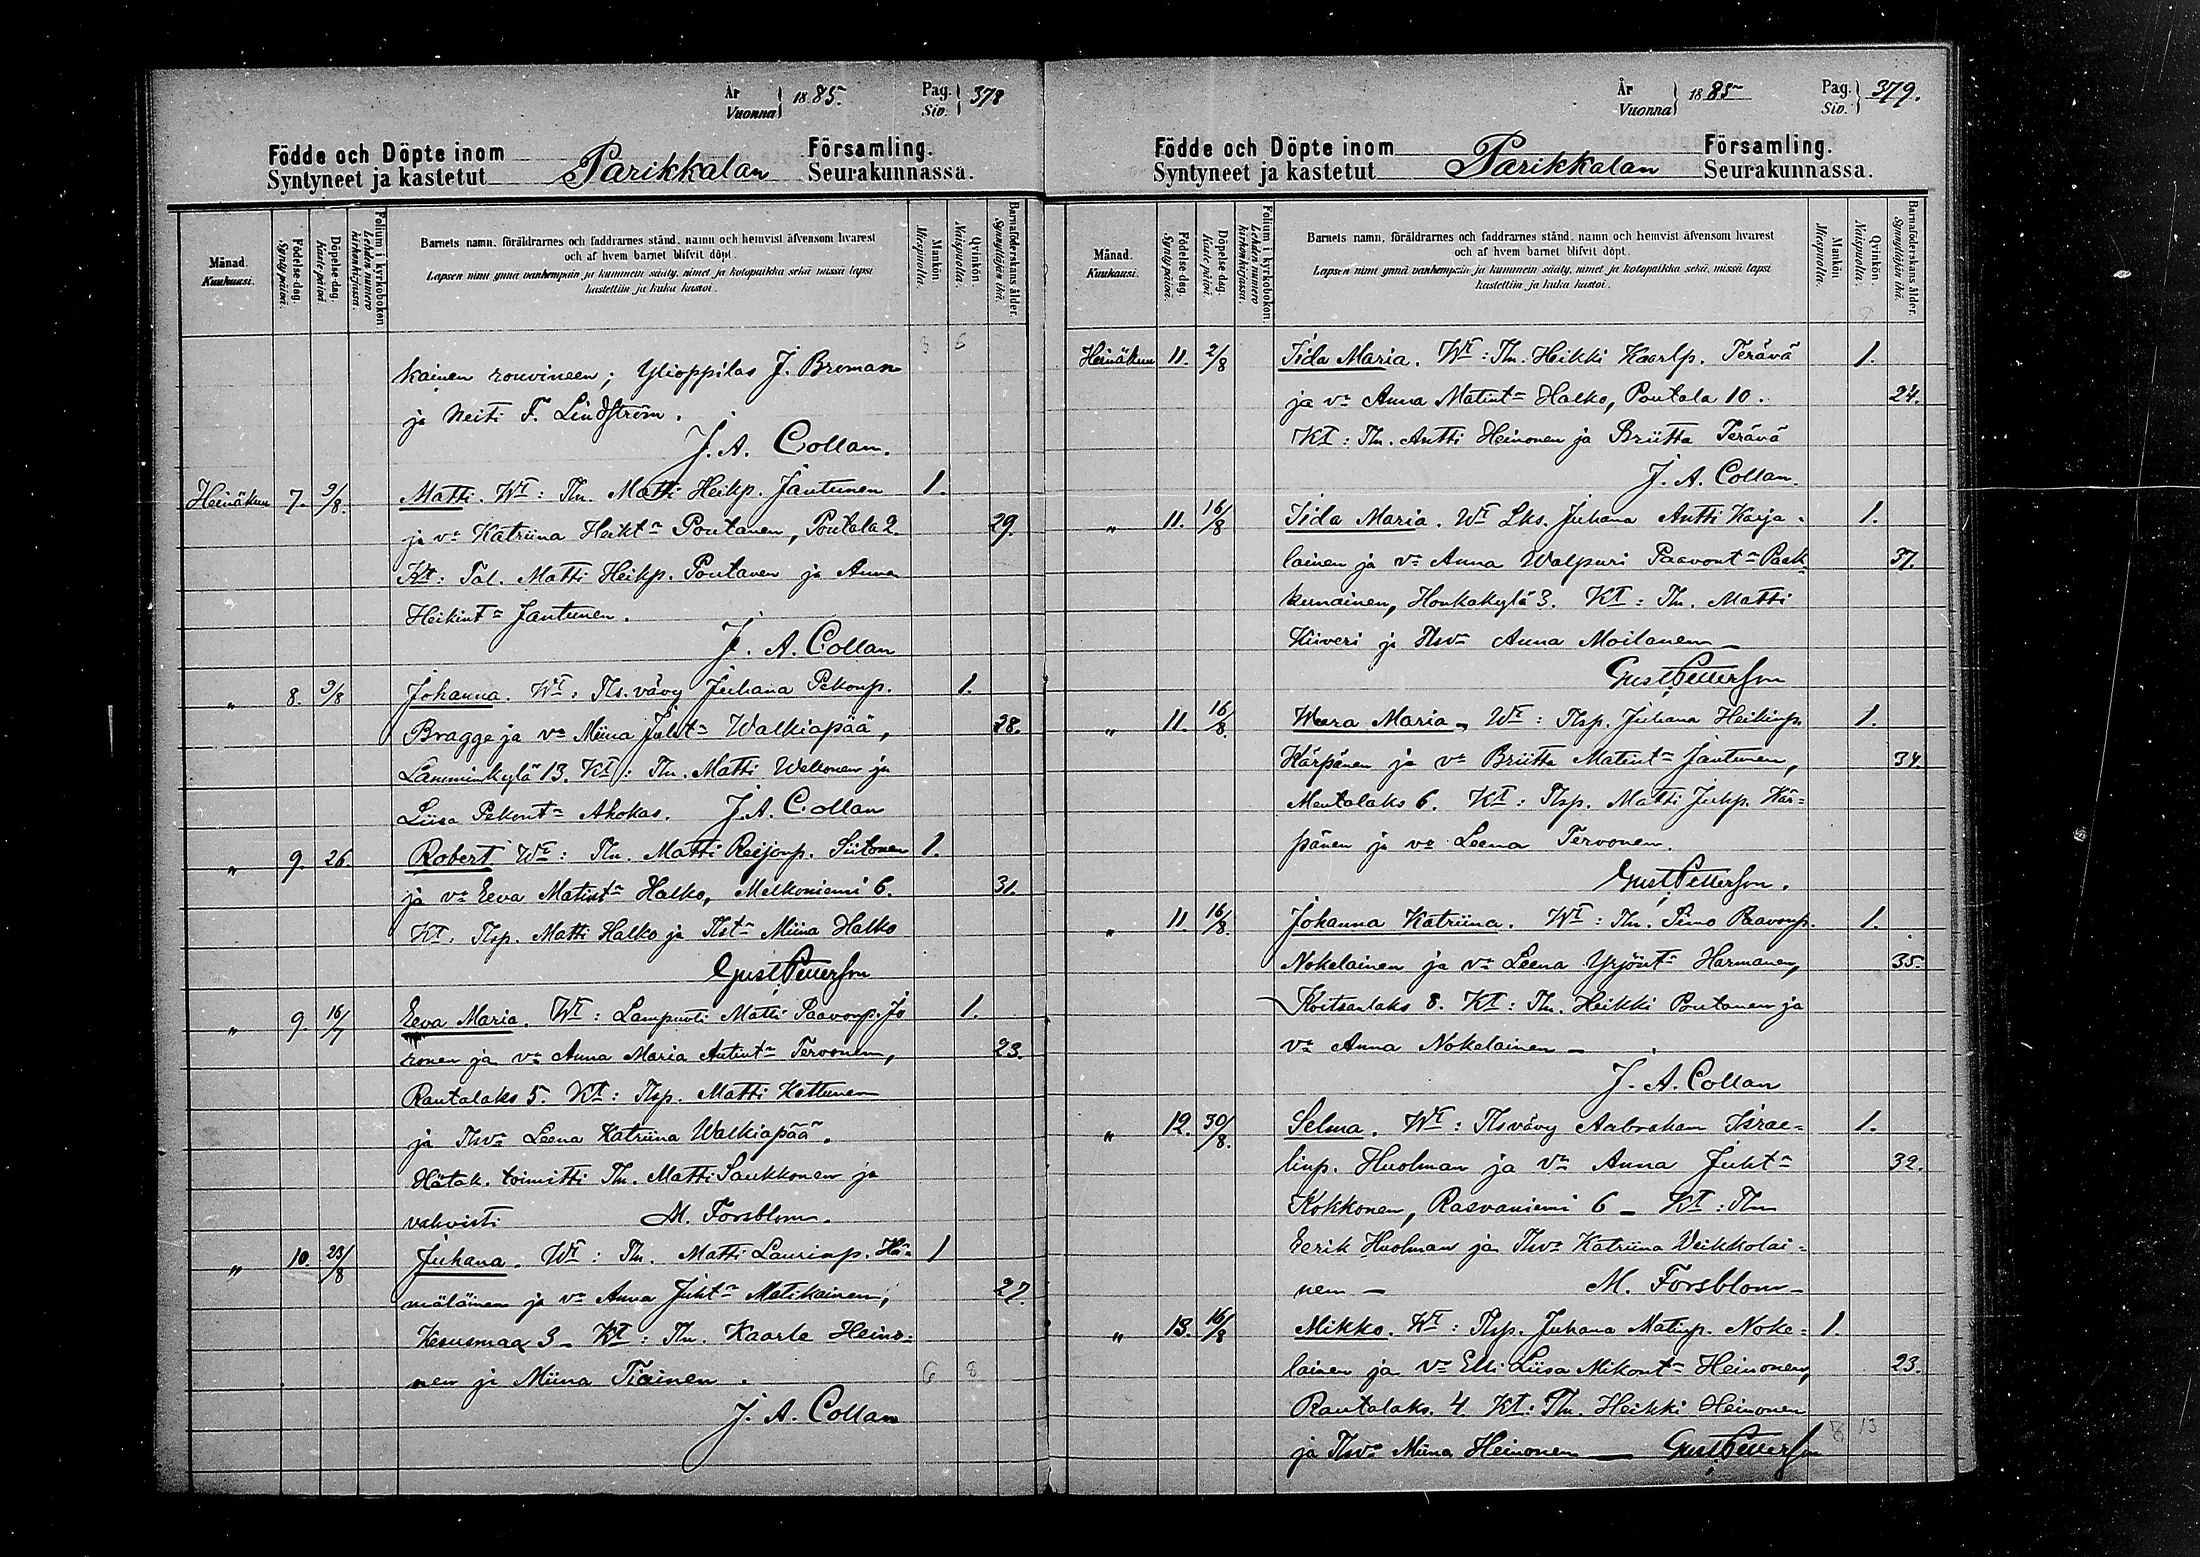 År
Vuonna } 1885. Pag.
Siv. } 378
Födde och Döpte inom Församling.
Syntyneet ja kastetut Parikkalan Seurakunnassa.
Månad.
Kuukausi.
Födelse-dag.
Synty päivä.
Döpelse-dag.
Kaste päivä.
Folium i kyrkoboken
Lehden numero
kirkonkirjassa.
Barnets namn, föräldrarnes och faddrarnes stånd, namn och hemvist äfvensom hvarest
och af hvem barnet blifvit döpt.
Lapsen nimi ynnä vanhempain ja kummein sääty, nimet ja kotopaikka sekä missä lapsi
kastettiin ja kuka kastoi.
Mankön.
Miespuolta.
Qvinkön.
Naispuolta.
Barnaföderskans ålder.
Synnyttäjän ikä.
3 6
kainen rouvineen; Ylioppilas J. Broman
ja Neiti F. Lindström.
J. A. Collan.
Heinäkuu 7. 9/8. Matti. Wt: Tln. Matti Heikp. Jantunen 1.
ja va Katriina Heikta Poutanen, Poutala 2. 29.
Kt: Tal. Matti Heikp. Poutanen ja Anna
Heikinta Jantunen.
J. A. Collan
„ 8. 9/8 Johanna. Wt: Tls. vävy Juhana Pekonp. 1.
Bragge ja va Miina Juhta Walkiapää, 28.
Lamminkylä 13. Kt: Tln. Matti Welkonen ja
Liisa Pekonta Ahokas. J. A. Collan
„ 9. 26. Robert Wt: Tln. Matti Reijonp. Siitonen 1.
ja va Eeva Matinta Halko, Melkoniemi 6. 31.
Kt. Tlsp. Matti Halko ja Tlsta Miina Halko
Gust Petterson
„ 9 16/7 Eeva Maria. Wt: Lampuoti Matti Paavonp. Jo 1.
ronen ja va Anna Maria Antinta Tervonen, 23.
Rautalaks 5. Kt: Tlsp. Matti Kettunen
ja Tlsva Leena Katriina Walkiapää.
Hätäk. toimitti Tln. Matti Saukkonen ja
vahvisti M. Forsblom.
„ 10. 23/8 Juhana. Wt: Tln. Matti Laurinp. Hä= 1
mäläinen ja va Anna Juhta Matikainen, 27.
Kesusmaa 3 – Kt: Tln. Kaarle Heino=
nen ja Miina Tiainen. 6 8
J. A. Collan
År
Vuonna } 1885 Pag.
Siv. } 379.
Födde och Döpte inom Församling.
Syntyneet ja kastetut Parikkalan Seurakunnassa.
Månad.
Kuukausi.
Födelse-dag.
Synty päivä.
Döpelse-dag.
Kaste päivä.
Folium i kyrkoboken
Lehden numero
kirkonkirjassa.
Barnets namn, föräldrarnes och faddrarnes stånd, namn och hemvist äfvensom hvarest
och af hvem barnet blifvit döpt.
Lapsen nimi ynnä vanhempain ja kummein sääty, nimet ja kotopaikka sekä missä lapsi
kastettiin ja kuka kastoi.
Mankön
Miespuolta.
Qvinkön.
Naispuolta.
Barnaföderskans ålder.
Synnyttäjän ikä.
Heinäkuu 11. 2/8 Iida Maria. Wt: Tln. Heikki Kaarlp. Terävä 1.
ja va Anna Matinta Halko, Poutala 10. 24.
Kt: Tln. Antti Heinonen ja Briitta Terävä
J. A. Collan.
„ 11. 16/8 Iida Maria. Wt Lks. Juhana Antti Karja= 1.
lainen ja va Anna Walpuri Paavonta Paak= 37.
kunainen, Honkakylä 3. Kt: Tln. Matti
Kiiveri ja Tlsva Anna Moilanen
Gust Petterson
„ 11. 16/8. Weera Maria. Wt: Tlsp. Juhana Heikinp. 1.
Kärpänen ja va Briitta Matinta Jantunen, 34.
Mentalaks 6. Kt: Tlsp. Matti Juhp. Kär=
pänen ja va Leena Tervonen.
Gust Petterson.
„ 11 16/8. Johanna Katriina. Wt: Tln. Simo Paavonp. 1.
Nokelainen ja va Leena Yrjönta Harmanen, 35.
Koitsanlaks 8. Kt: Tln. Heikki Poutanen ja
va Anna Nokelainen –
J. A. Collan
„ 12. 30/8. Selma. Wt: Tlsvävy Aabraham Israe= 1.
linp. Huolman ja va Anna Juhta 32.
Kokkonen, Rasvaniemi 6 – Kt: Tln
Eerik Huolman ja Tlsva Katriina Weikkolai=
nen – M. Forsblom –
„ 13. 16/8 Mikko. Wt: Tlsp. Juhana Matinp. Noke= 1.
lainen ja va Elli Liisa Mikonta Heinonen, 23.
Rautalaks. 4. Kt: Tln. Heikki Heinonen
ja Tlsva Miina Heinonen – Gust Petterson 8 13